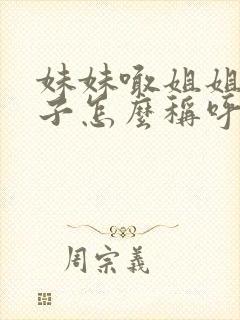 妹妹噷姐姐
子怎麼稱呼
周宗義